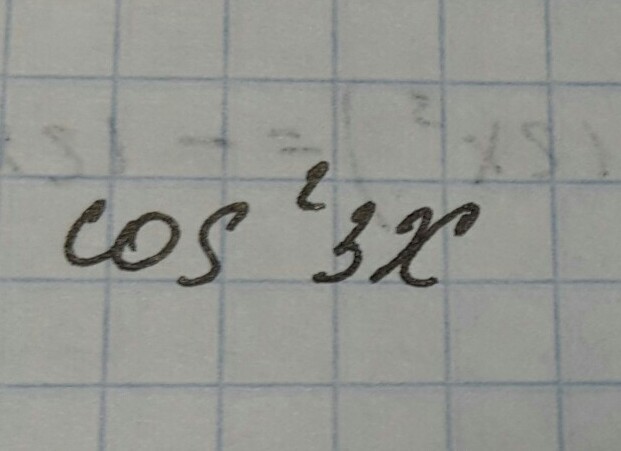 cos²3x